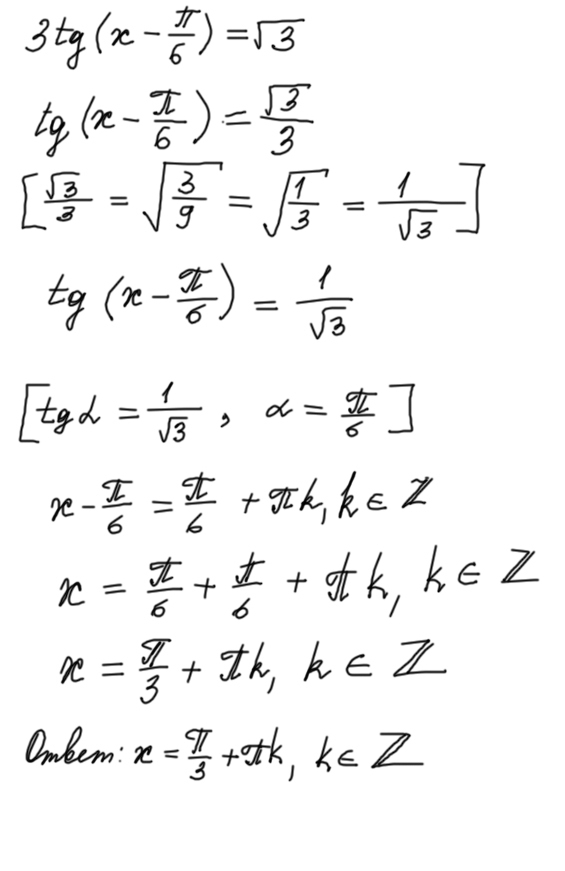 3tg(x - π/6) = √3
tg(x - π/6) = √3/3
[√3/3 = √(3/9) = √(1/3) = 1/√3]
tg (x - π/6) = 1/√3
[tg α = 1/√3 , α = π/6]
x - π/6 = π/6 + πk, k ∈ ℤ
x = π/6 + π/6 + πk, k ∈ ℤ
x = π/3 + πk, k ∈ ℤ
Ответ: x = π/3 + πk, k ∈ ℤ